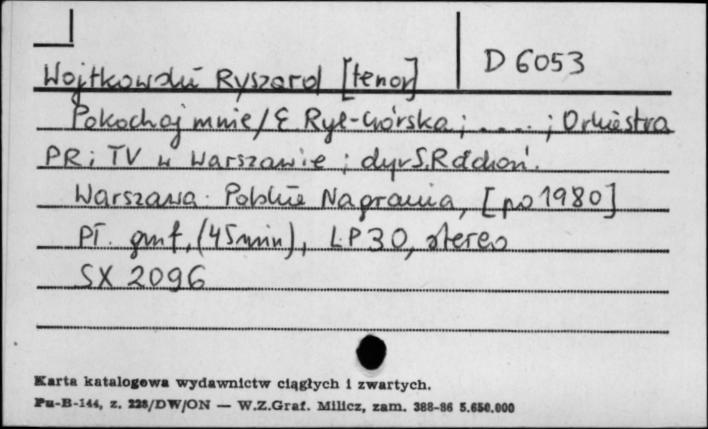 D 6053
Wojtkowski Ryszard [tenor]
Pokochaj mnie / E. Rył-Górska ; .... ; Orkiestra
PR i TV w Warszawie ; dyr S. Rachoń.
Warszawa : Polskie Nagrania, [po 1980]
Pł. gmf, (45 min), LP 30, stereo
SX 2096
Karta katalogowa wydawnictw ciągłych i zwartych.
Pu-B-144, z. 228/DW/ON — W.Z.Graf. Milicz, zam. 388-86 5.650.000